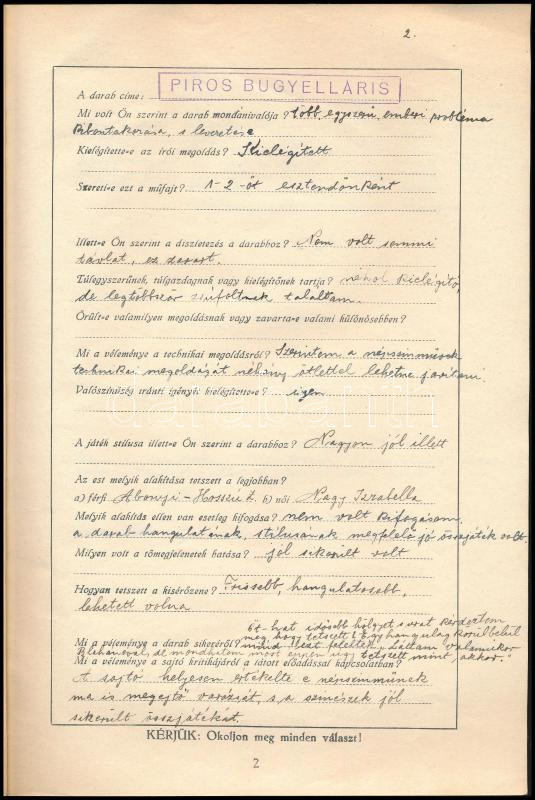 2.
PIROS BUGYELLÁRIS
A darab címe:
Mi volt Ön szerint a darab mondanivalója? Több egyszerű, emberi probléma
kibontakozása, s levezetése
Kielégítette-e az írói megoldás? Kielégített
Szereti-e ezt a műfajt? 1-2-őt esztendőnként
Illett-e Ön szerint a díszletezés a darabhoz? Nem volt semmi
távlat, ez zavart.
Túlegyszerűnek, túlgazdagnak vagy kielégítőnek tartja? néhol kielégítő,
de legtöbbször zsúfoltnak találtam.
Örült-e valamilyen megoldásnak vagy zavarta-e valami különösebben?
Mi a véleménye a technikai megoldásról? Szerintem a népszínművek
technikai megoldását néhány ötlettel lehetne javítani.
Valószínűség iránti igényét kielégítette-e? igen
darabanth
A játék stílusa illett-e Ön szerint a darabhoz? Nagyon jól illett
Az est melyik alakítása tetszett a legjobban?
a) férfi Abonyi - Hosszú Z. b) női Nagy Izabella
Melyik alakítás ellen van esetleg kifogása? nem volt kifogásom,
a darab hangulatának, stílusának megfelelő jó összjáték volt.
Milyen volt a tömegjelenetek hatása? jól sikerült volt
Hogyan tetszett a kísérőzene? Frissebb, hangulatosabb,
lehetett volna
6t-hat idősebb hölgyet s urat kérdeztem
meg, hogy tetszett? Egyhangúlag körülbelül
Mi a véleménye a darab sikeréről? mind ezt felelték „láttam valamikor
Blahánéval, de mondhatom most éppen úgy tetszett mint „akkor."
Mi a véleménye a sajtó kritikájáról a látott előadással kapcsolatban?
A sajtó helyesen értékelte e népszínműnek
ma is megejtő varázsát, s a színészek jól
sikerült összjátékát.
KÉRJÜK: Okoljon meg minden választ!
2